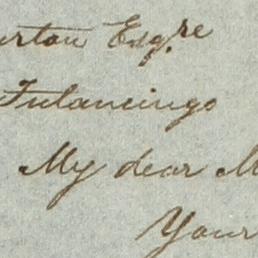 urton Esqre
Tulancingo
My dear M
Your